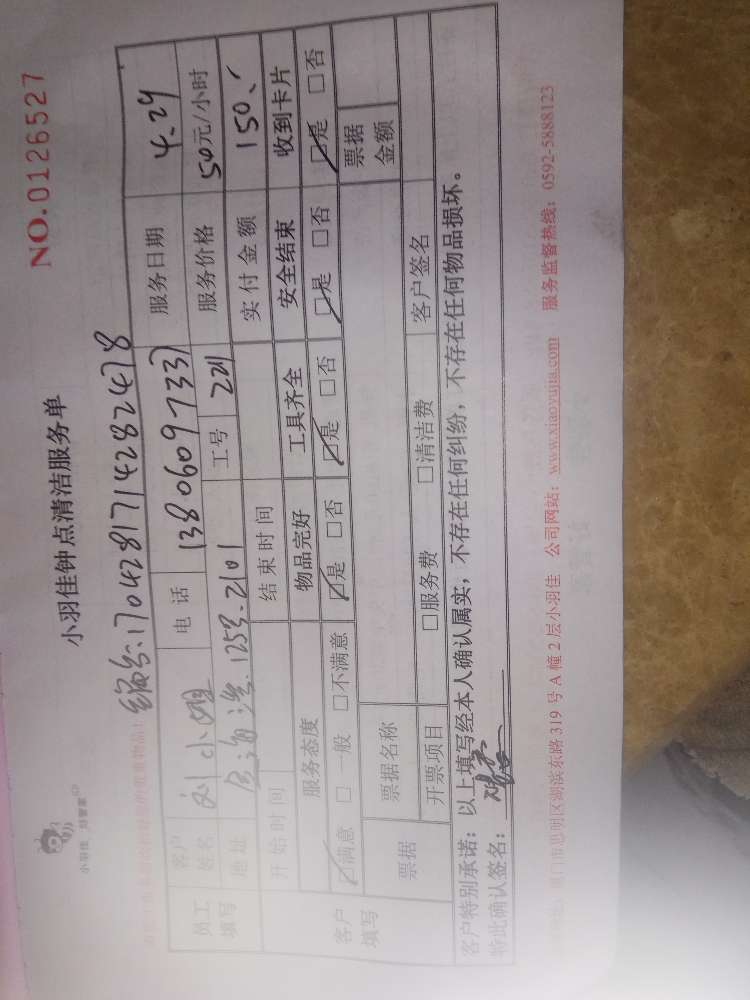 小羽佳 好管家
小羽佳钟点清洁服务单
NO.0126527
编号:1704281714282478
员工填写
客户姓名 刘小姐 电话 13806097337 服务日期 4.29
地址 125号.2101 工号 服务价格 50元/小时
开始时间 结束时间 实付金额 150.
客户填写
服务态度 物品完好 工具齐全 安全结束 收到卡片
☑满意 □一般 □不满意 ☑是 □否 ☑是 □否 ☑是 □否 ☑是 □否
票据 票据名称 票据金额
开票项目 □服务费 □清洁费 客户签名
客户特别承诺:以上填写经本人确认属实,不存在任何纠纷,不存在任何物品损坏。
特此确认签名:
厦门市思明区湖滨东路 319 号 A 幢 2 层小羽佳 公司网站:www.xiaoyujia.com 服务监督热线:0592-5888123